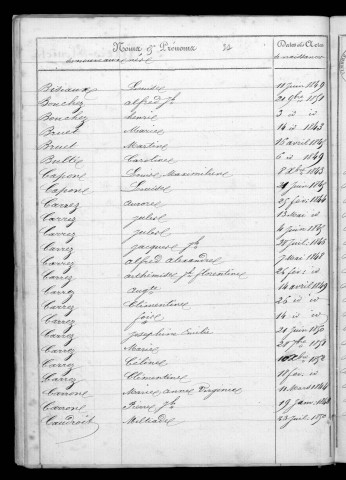 Noms & Prénoms
Dates des Actes
de naissance
Louise 11 juin 1849
Bouchez alfred jh 21 9bre 1850
Bouchez henri 3 id id
Bruet Marie 14 id 1843
Bruet Martine 16 avril 1845
Caroline 6 id 1849
Capone Louis Maximilien 8 Xbre 1843
Capone Louise juin 1845
Carrez aurore 25 fév. 1844
Carrez juliet 13 Mai id
Carrez juliet 4 juin 1845
Carrez jacques jh 28 juil. 1846
Carrez alfred alexandre 7 Mai 1848
Carrez jh florentine 26 fév. id
Carrez aug 14 avril 1849
Carrez Clémentine 26 id id
Carrez 14 id id
Carrez joséphine Emilie 21 juin 1850
Carrez Marie 28 7bre 1850
Carrez Céline 1850
Carrez Clémentine 11 fév. id
Carron Marie anne Virginie 11 Mars 1844
Carron Pierre jh 19 janv. 1848
Caudroit 23 juil. 1850